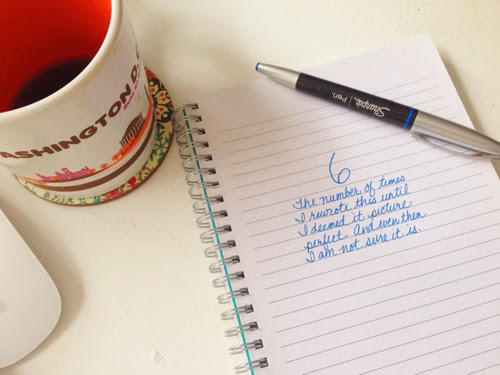 WASHINGTON D.C.
Sharpie. Pen.
6
The number of times
I rewrote this until
I deemed it picture
perfect. And even then
I am not sure it is.